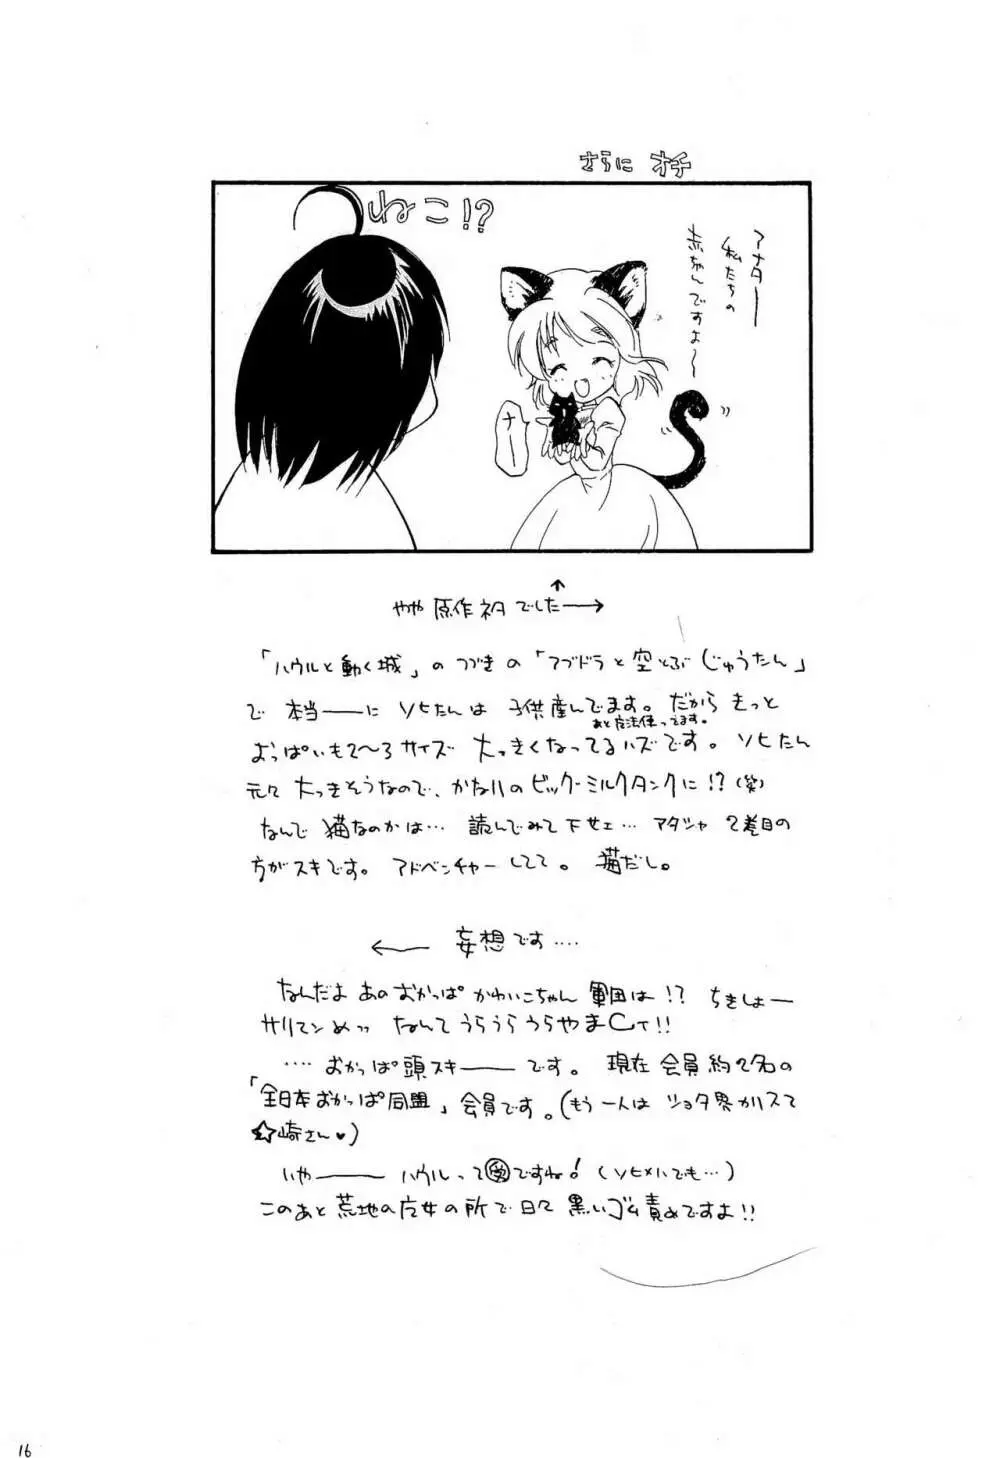 さらに オチ
ねこ!?
アナター
私たちの
赤ちゃんですよ〜
ナー
やや 原作ネタ でした→
「ハウルと動く城」の つづきの「アブドラと空とぶじゅうたん」
で 本当——に ソヒたんは 子供産んでます。だから きっと
あと魔法使ってます。
おっぱいも2〜3サイズ 大っきくなってるハズです。ソヒたん
元々 大っきそうなので、かなりの ビックーミルクタンクに!?(笑)
なんで 猫なのかは… 読んでみて下せェ… アタシャ 2巻目の
方がスキです。アドベンチャーしてて。猫だし。
← 妄想です‥‥
なんだよ あの おかっぱ かわいこちゃん 軍団は!? ちきしょー
サリマンめッッ なんて うらうら うらやまCィ!!
‥‥ おかっぱ頭スキ——です。現在 会員約2名の
「全日本おかっぱ同盟」会員です。(もう一人は ショタ界カリスマ
☆崎さん♥)
いや—— ハウルって受ですね!(ソヒメハでも…)
このあと 荒地の魔女の所で 日々 黒いゴム責めですよ!!
16